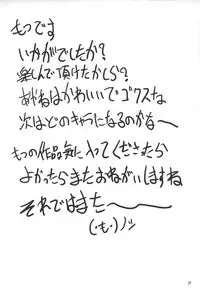 もつです
いかがでしたか？
楽しんで頂けたかしら？
あかねはかわいいでゴクスな
次はどのキャラになるのかな〜
もつの作品気に入ってくださったら
よかったらまたおねがいしますね
それではまた〜〜〜
(・も・)ノシ